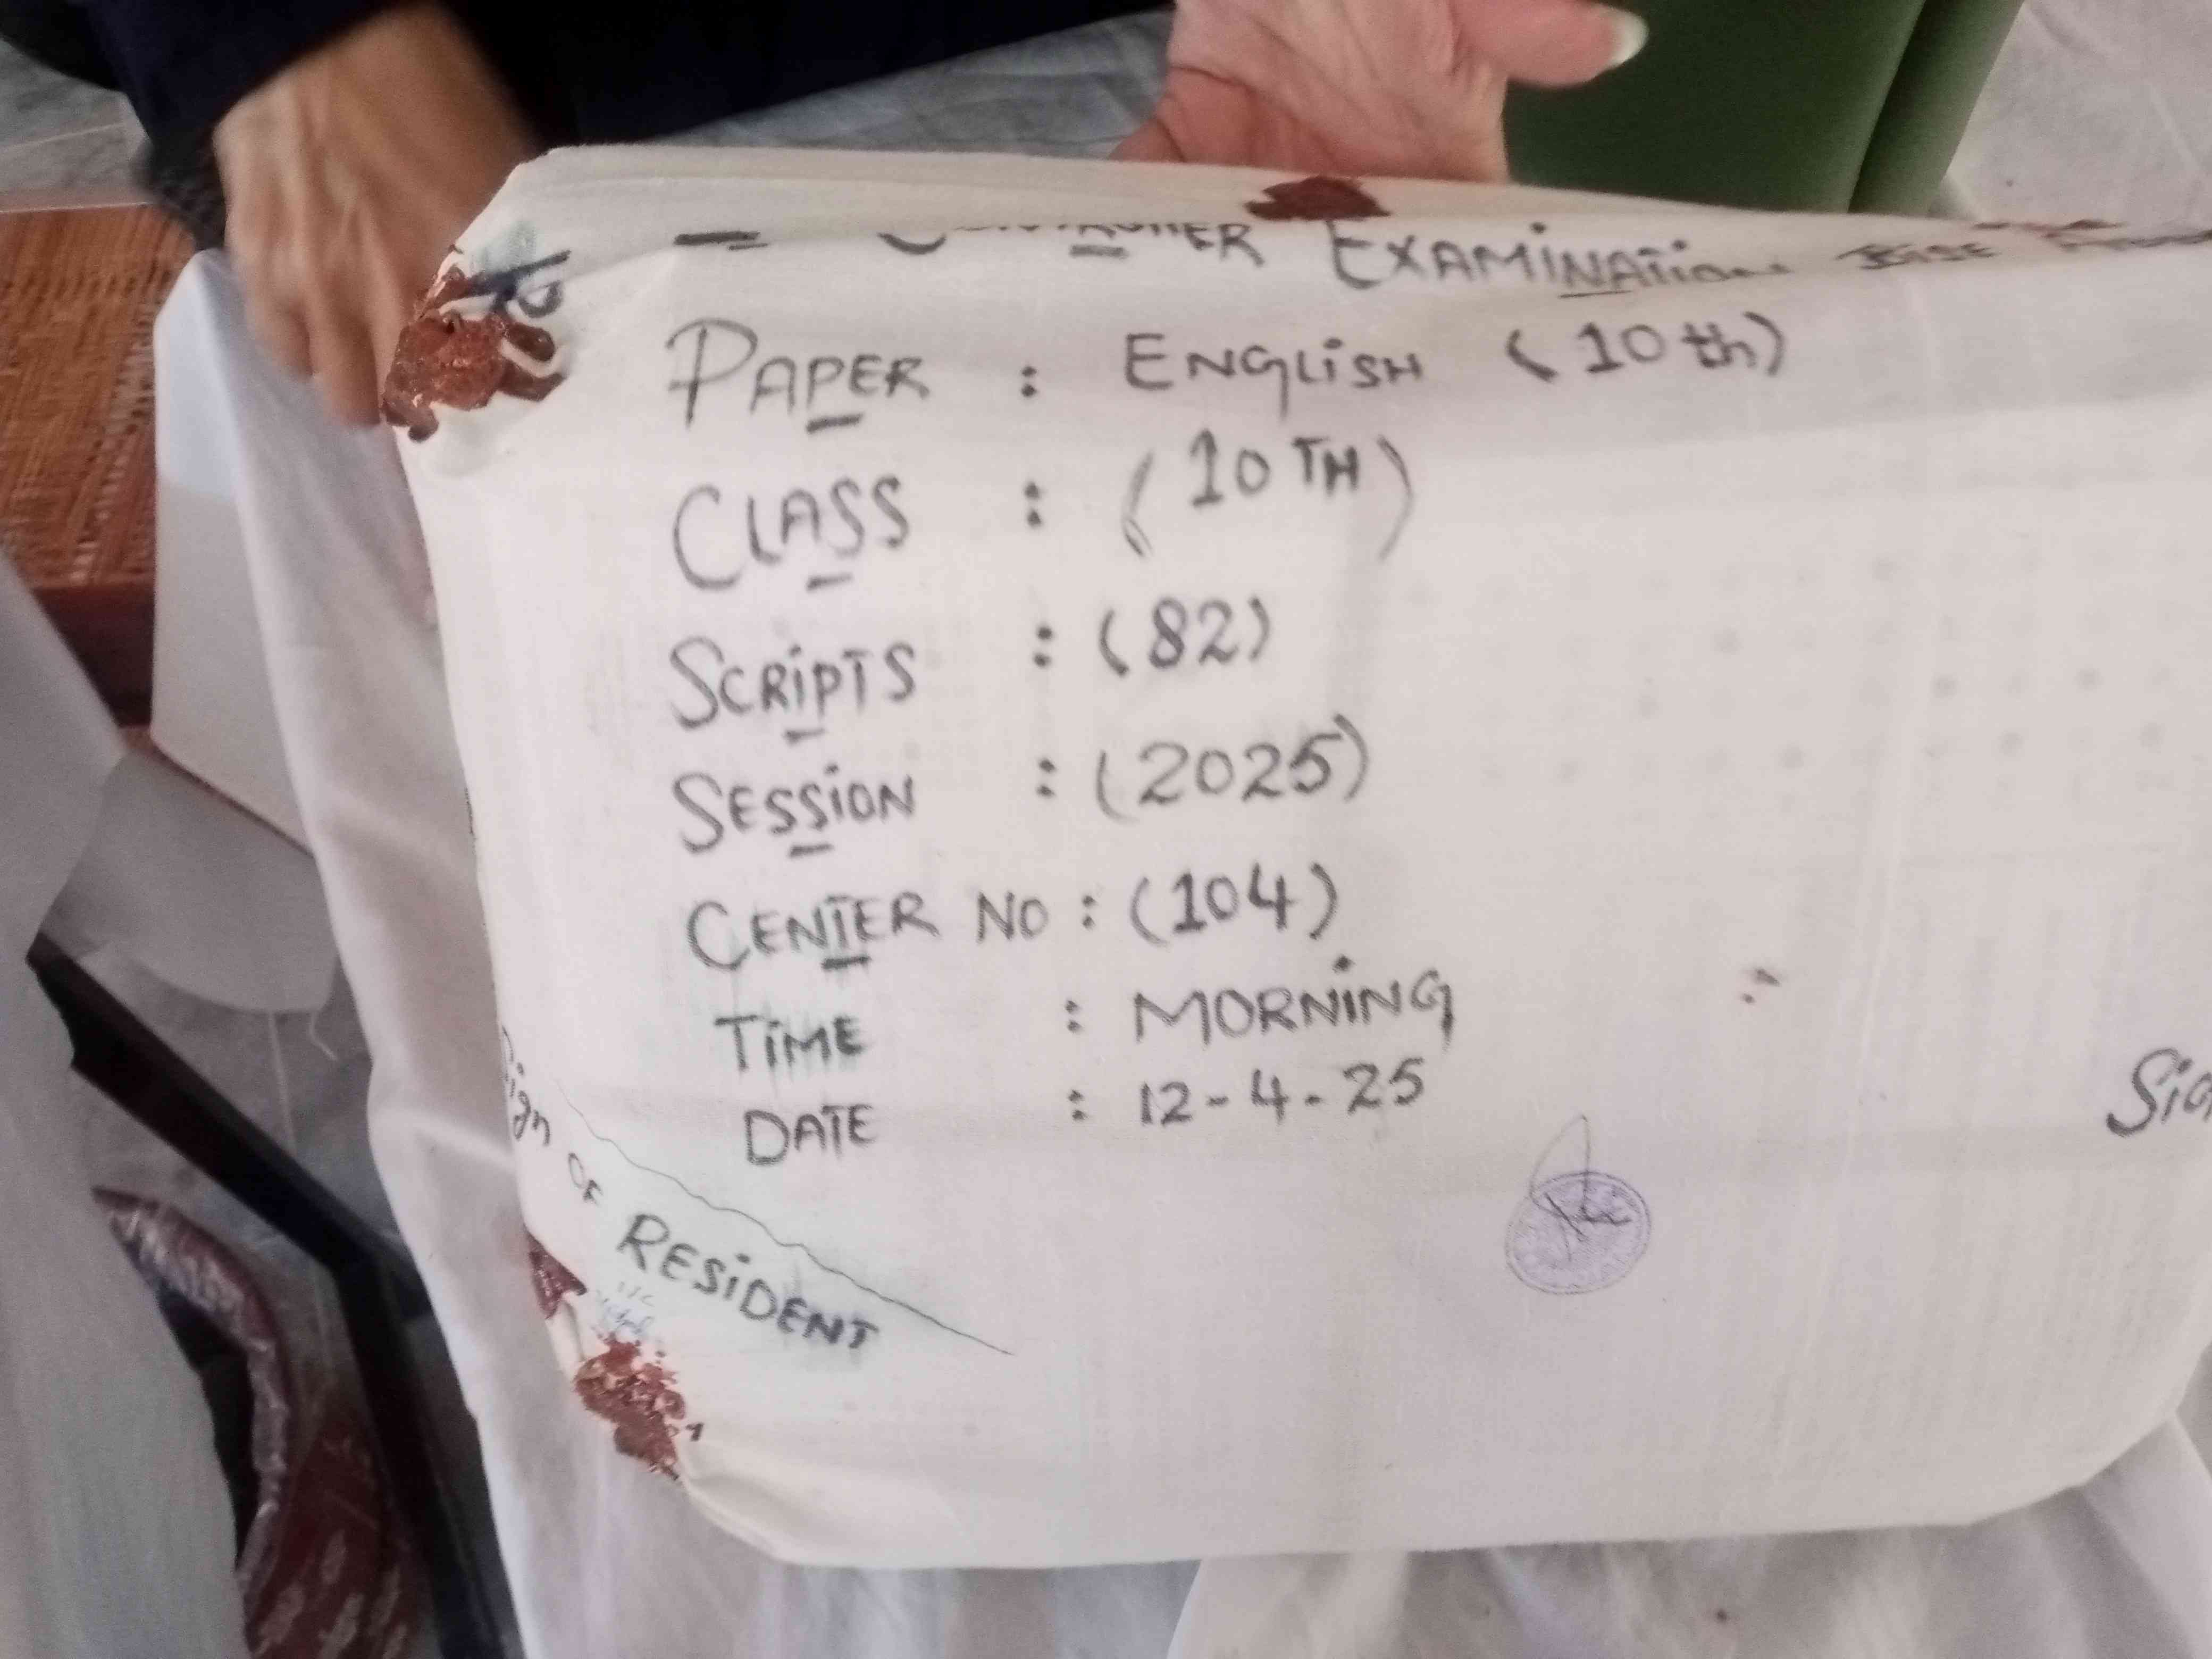 To = Controller Examination BISE
PAPER : ENGLiSH (10th)
CLASS : (10TH)
SCRiPTS : (82)
SESSiON : (2025)
CENTER NO : (104)
TiME : MORNiNG
DATE : 12-4-25
Sign OF RESiDENT